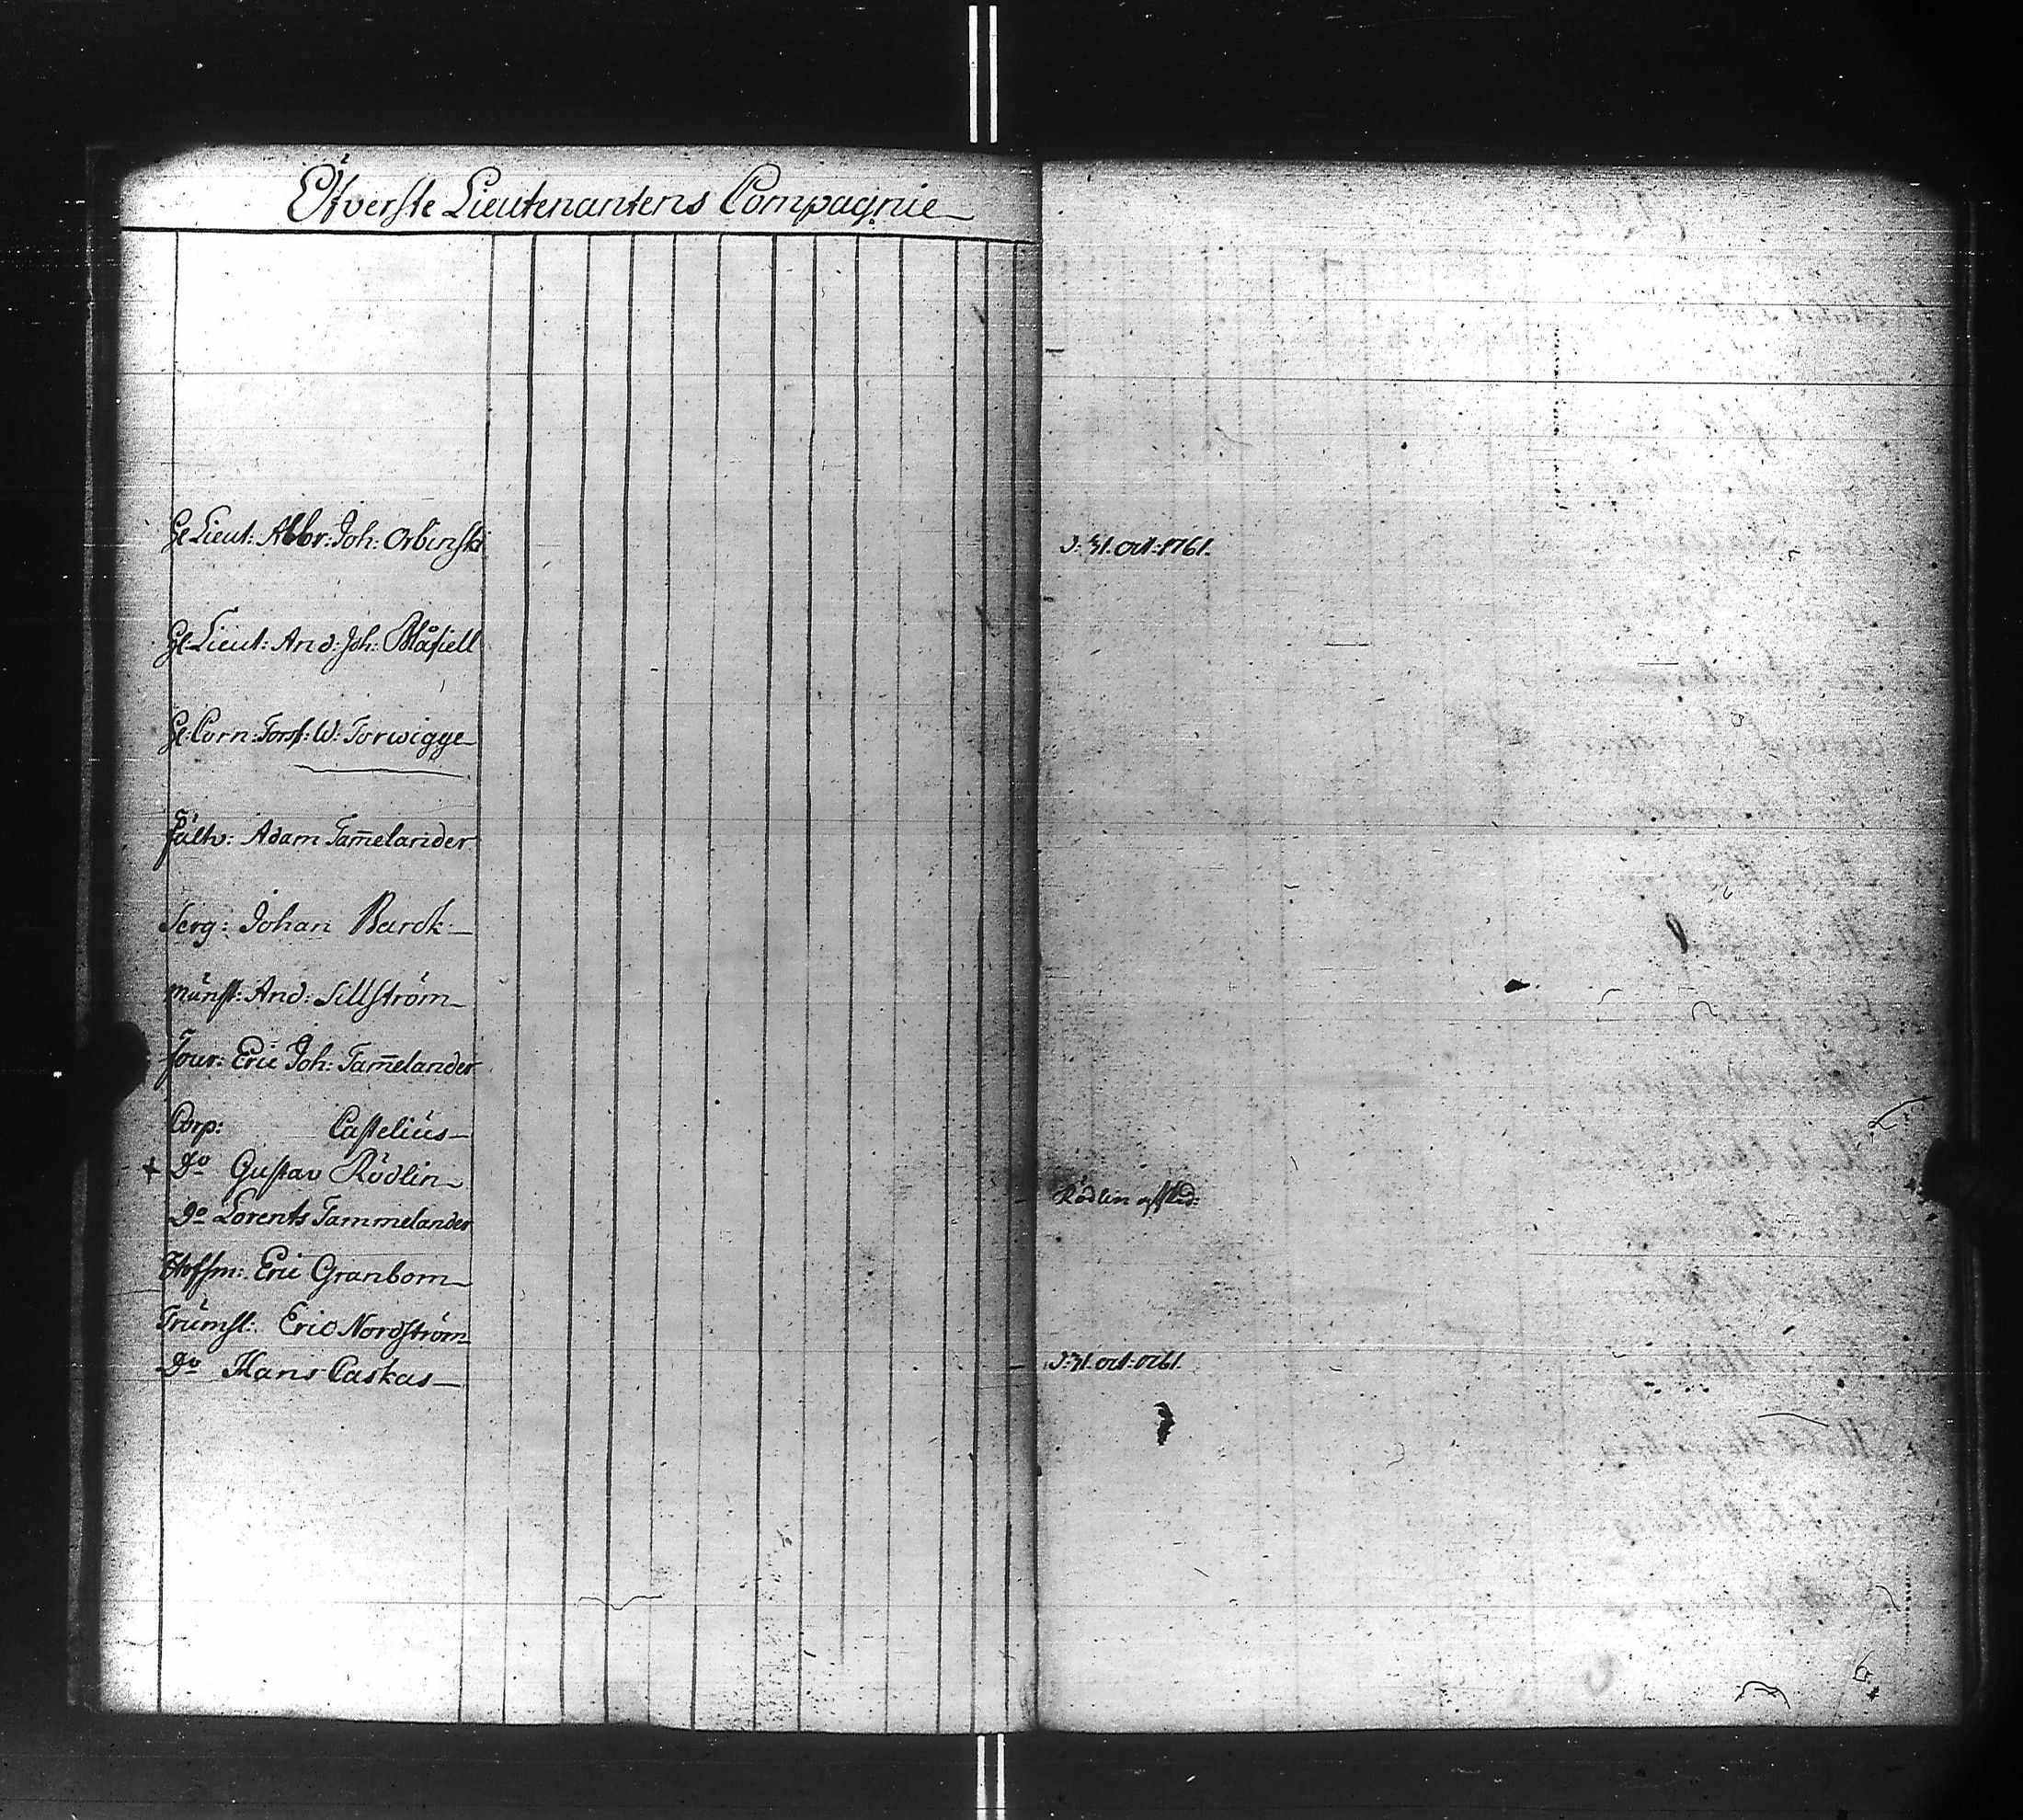 Öfverste Lieutenantens Compagnie
Gl Lieut: Abbr: Joh: Orbinski
J: 31. oct: 1761.
Gl: Lieut: And: Joh: Blåfiell
Gl: Corn: Torst: W: Torwigge
fältv: Adam Tam̄elander
Serg: Johan Barck
Munst: And: Sillström
four: Eric Joh: Tam̄elander
Corp: Castelius
+ Do Gustav Rödlin
Rödlin afsked:
Do Lorents Tammelander
Hofsm: Eric Granbom
Trumsl: Eric Nordström
Do Hans Caskas
J: 31. oct: 1761.